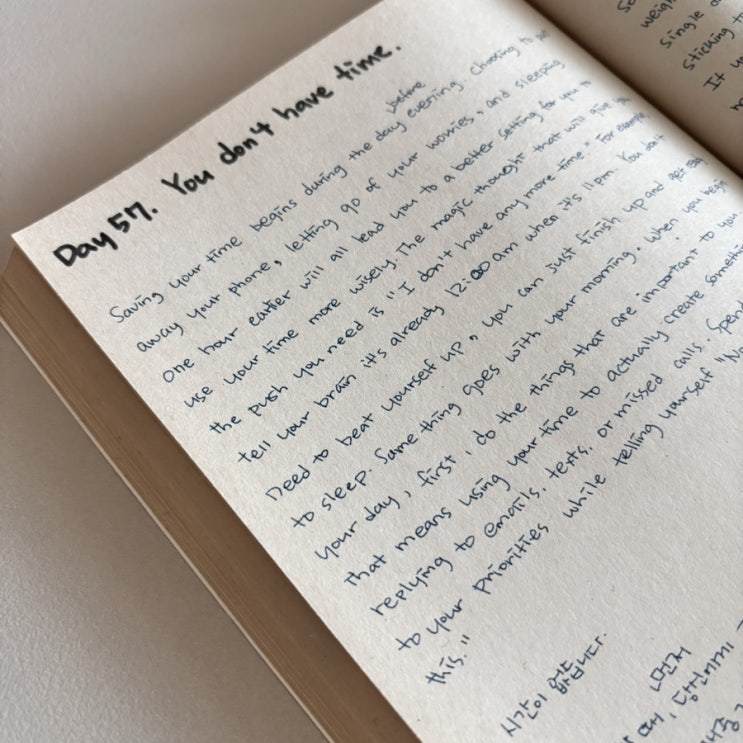 Day 57. You don't have time.
Saving your time begins during the day before evening. Choosing to put
away your phone, letting go of your worries, and sleeping
one hour earlier will all lead you to a better setting for you to
use your time more wisely. The magic thought that will give you
the push you need is "I don't have any more time." For example
tell your brain it's already 12:00 am when it's 11pm. You don't
need to beat yourself up, you can just finish up and get ready
to sleep. Same thing goes with your morning. When you begin
your day, first, do the things that are important to you.
That means using your time to actually create something
replying to emails, texts, or missed calls. Spend
to your priorities while telling yourself "No
this."
시간이 없습니다.
먼저
때, 당신에게
So
weigh
single
sticking
It yo